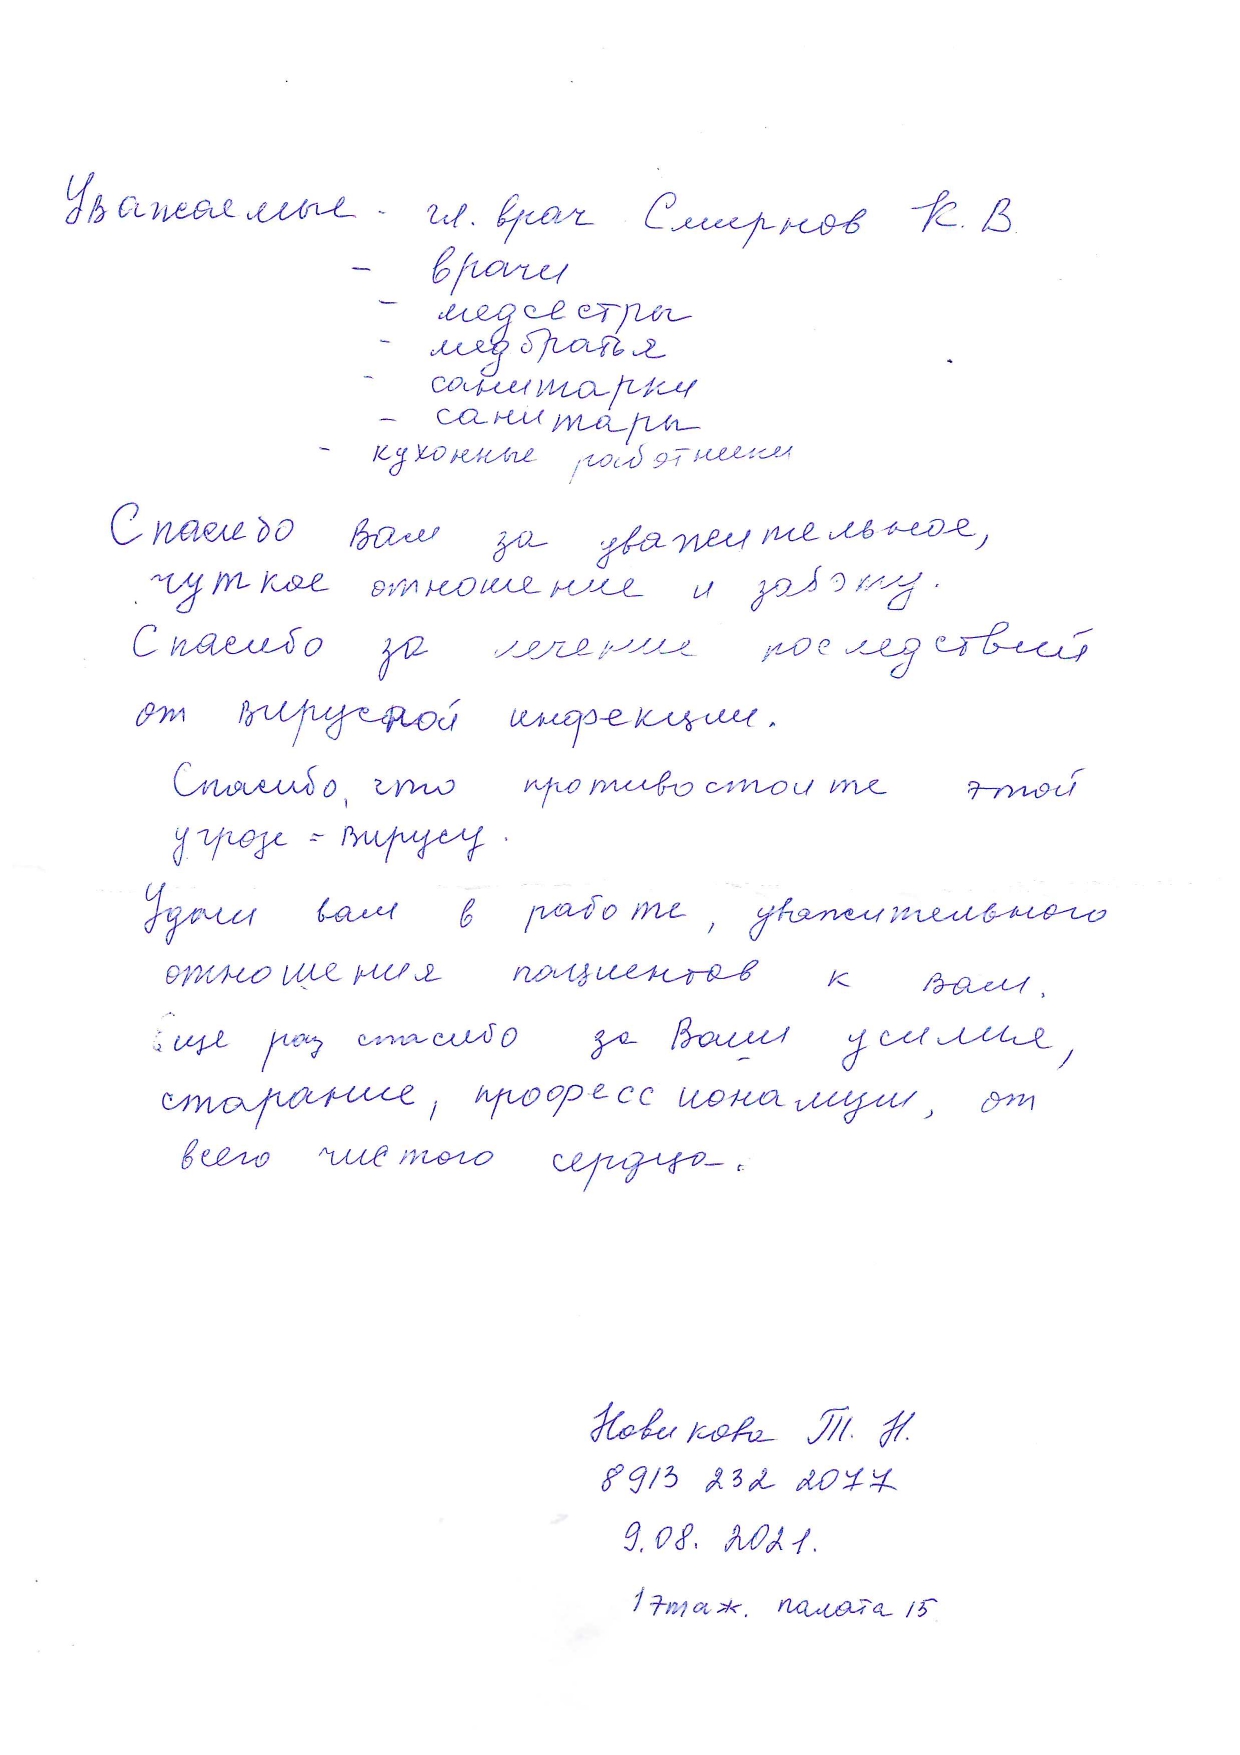 Уважаемые - гл. врач Смирнов К. В.
- врачи
- медсестры
- медбратья
- санитарки
- санитары
- кухонные работники
Спасибо Вам за уважительное,
чуткое отношение и заботу.
Спасибо за лечение последствий
от вирусной инфекции.
Спасибо, что противостоите этой
угрозе = вирусу.
Удачи вам в работе, уважительного
отношения пациентов к вам.
Еще раз спасибо за Ваши усилия,
старание, профессионализм, от
всего чистого сердца.
Новикова Т. Н.
8913 232 2077
9.08. 2021.
1 этаж. палата 15